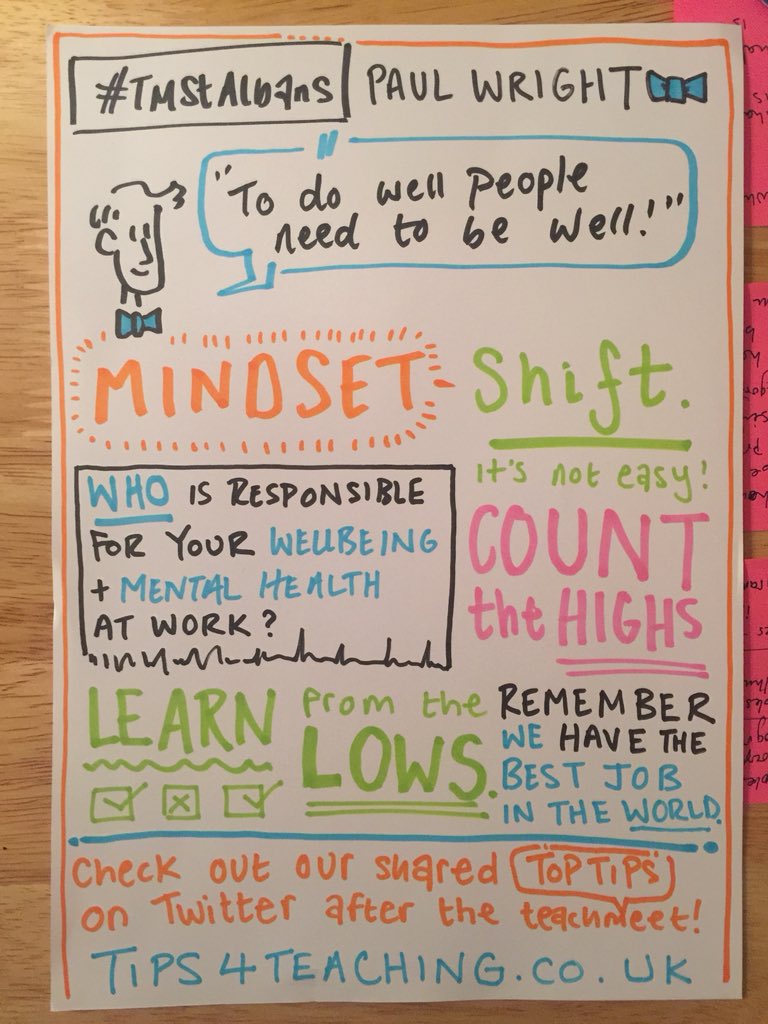 #TMStAlbans PAUL WRIGHT
"To do well people
need to be well!"
MINDSET Shift.
it's not easy!
WHO IS RESPONSIBLE
FOR YOUR WELLBEING
+ MENTAL HEALTH
AT WORK?
COUNT
the HIGHS
LEARN from the
LOWS.
REMEMBER
WE HAVE THE
BEST JOB
IN THE WORLD.
Check out our shared TOP TIPS
on Twitter after the teachmeet!
TIPS4TEACHING.CO.UK